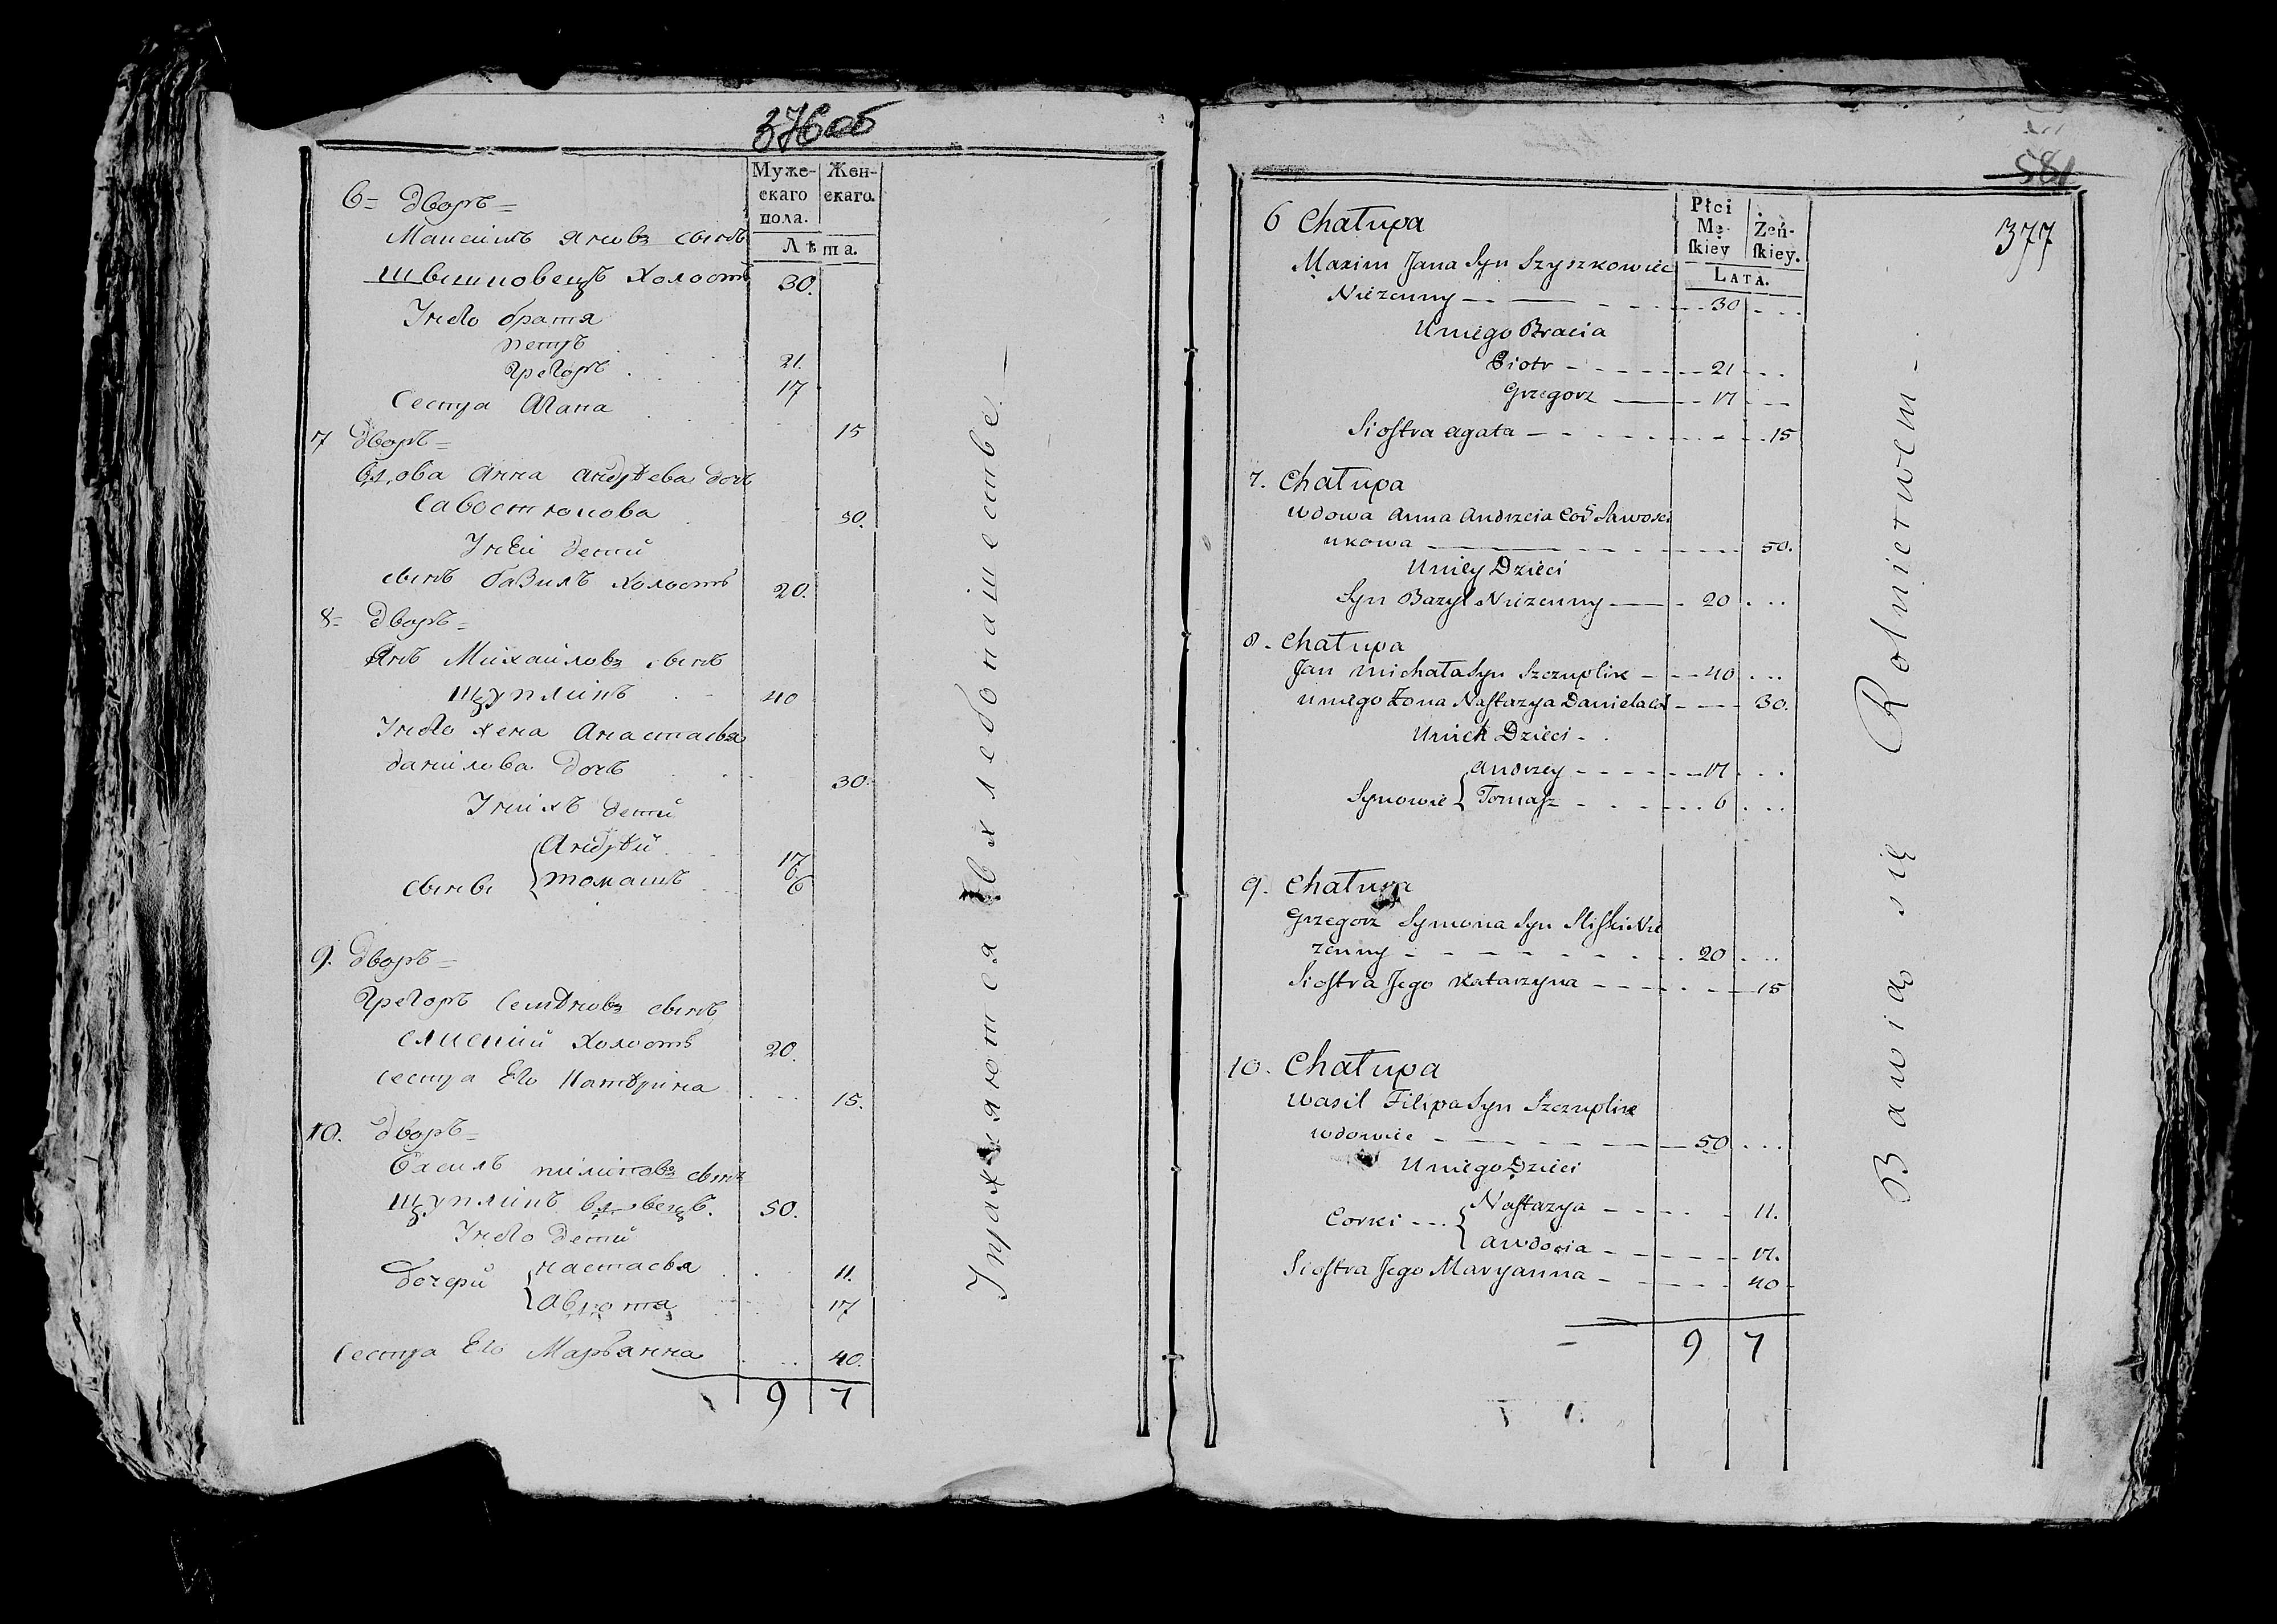 376об
Муже-
скаго
пола.
Жен-
скаго.
Лѣта.
6= дворъ=
Максимъ Яновъ сынъ
Швышковецъ холостъ 30.
Унего братя
петръ 21.
Грегоръ 17
Сестра Агата 15
7 дворъ=
Вдова Анна Андрѣева дочь
Савостюкова 50.
Унеи дети
сынъ базилъ холостъ 20.
8= дворъ=
Янъ Михаиловъ сынъ
Щупликъ 40
Унего жена Анастасья
данилова дочь 30.
Унихъ дети
Андрѣй 17
сыны томашъ 6
9. дворъ=
Грегоръ Семѣновъ сынъ
слиский холостъ 20.
сестра Его Катѣрина 15.
10. дворъ=
Василь пилиповъ сынъ
Щупликъ вдовецъ. 50.
Унего дети
дочери настасья 11.
17
сестра Его Марьянна 40.
9 7
Упражняются в хлебопашестве
581
377
Płci
Mę-
ſkiey
Żeń-
ſkiey.
LATA.
6 Chałupa
Maxim Jana Syn Szyszkowiec
Nieżenny 30
U niego Bracia
Piotr 21
Grzegorz 17
Sioſtra agata 15
7. Chałupa
Wdowa Anna Andrzeia Coś Sawosci
ukowa 50.
U niey Dzieci
Syn Bazyl Nieżenny 20
8. Chałupa
Jan Michała Syn Szczuplik 40
U niego Żona Naſtazya Daniela Coś 30.
U nich Dzieci
Andrzey 17
Synowie Tomaſz 6
9. Chałupa
Grzegorz Symona Syn Sliſki Nie
żenny 20
Sioſtra Jego Katarzyna 15
10. Chałupa
Wasil Filipa Syn Szczuplik
wdowiec 50
U niego Dzieci
Corki Naſtazya 11.
Awdocia 17.
Sioſtra Jego Maryanna 40
9 7
Bawią się Rolnictwem